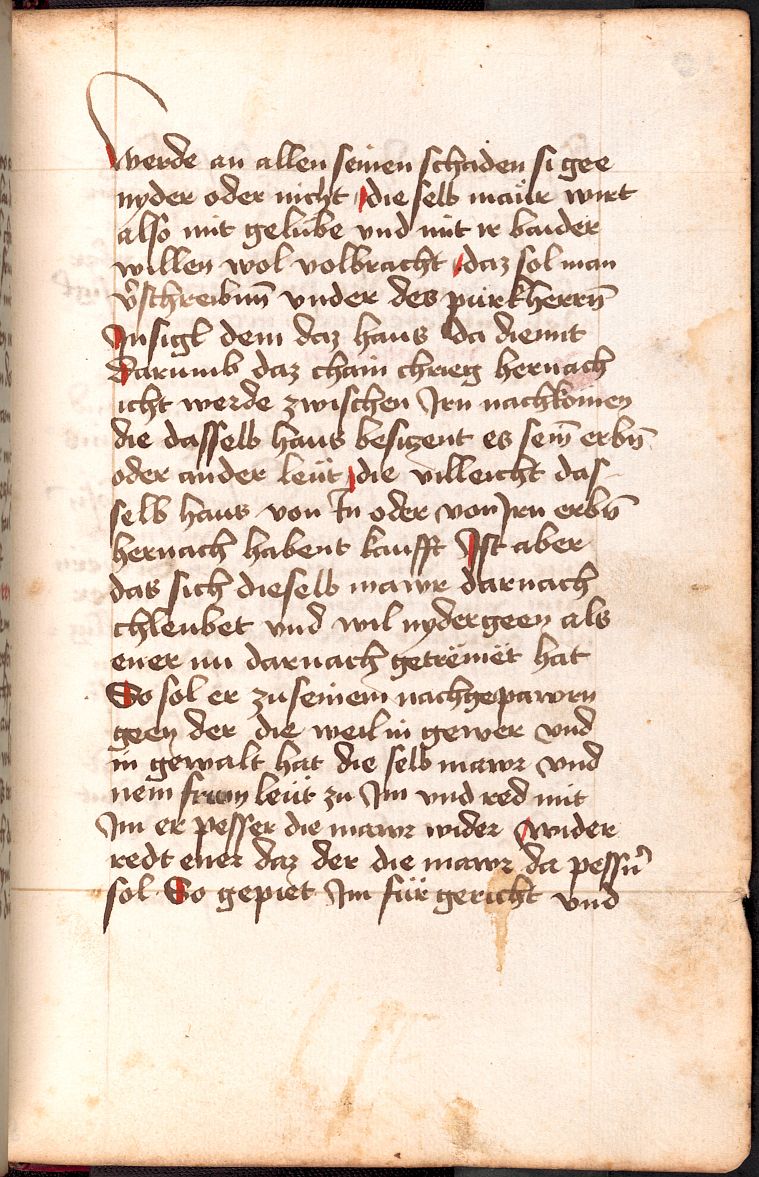 werde an allen seinen schaden si gee
nyder oder nicht die selb mawr wirt
also mit gelübe vnd mit ir baider
willen wol volbracht daz sol man
v̄schreibm̄ vnder des purkherrn̄
Insigl dem daz haus da diennt
Darumb daz chain chrieg hernach
icht werde zwischen Irn nachkomen
die dasselb haus besiczent es sein̄ erbm̄
oder ander leüt die villeicht das
selb haus von In oder von Irn erbm̄
hernach habent kaufft Ist aber
das sich dieselb mawr darnach
chleubet vnd wil nydergeen als
ener nu darnach getrëmet hat
So sol er zu seinem nachgepawrn
geen der die weil in gewer vnd
in gewalt hat die selb mawr vnd
nem frum leüt zu Im vnd red mit
Im er pesser die mawr wider wider
redt ener daz der die mawr da pessn̄
sol So gepiet Im für gericht vnd